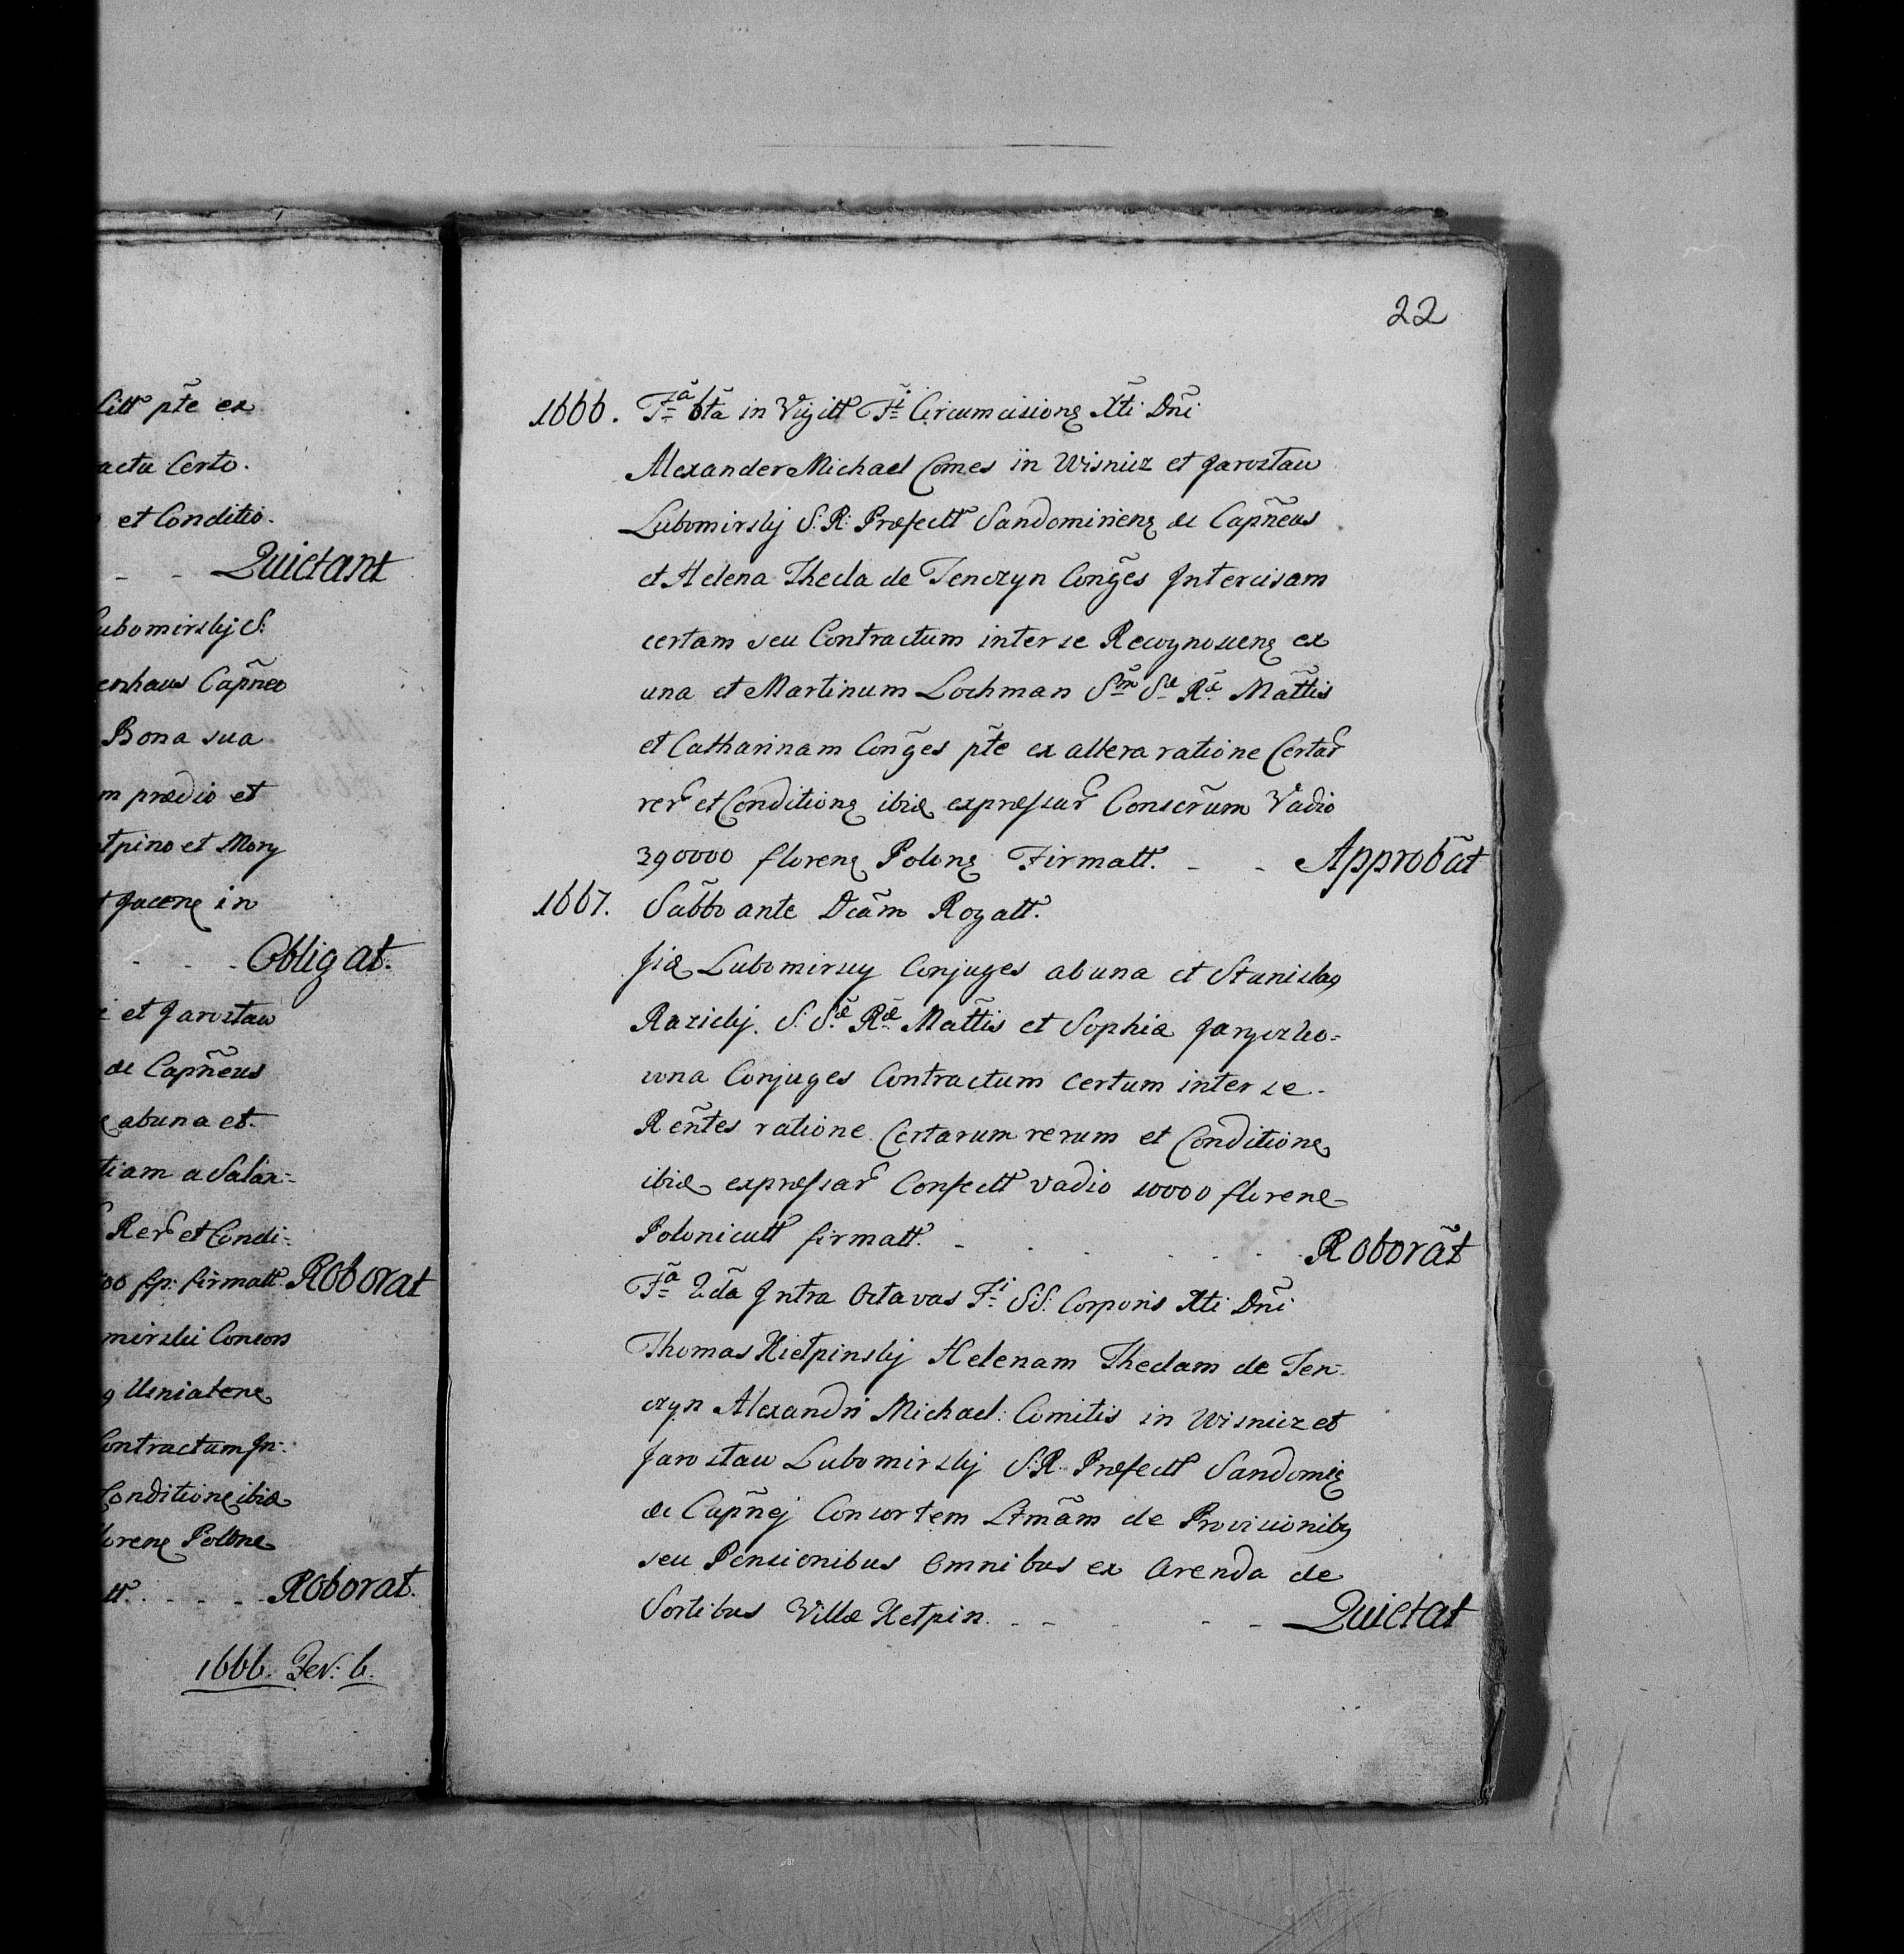 litt p̃te ex
actu Certo.
et Conditio.
- - Quietant
ubomirskj S:
enhaus Cap̃neo
Bona sua
m prædio et
tpino et Mory
Jacenę in
- - - Obligat.
et Jarosław
de Cap̃neus
abuna et
tiam a Salan=
Rerꝛ et Condi=
00 flp: firmatt. Roborat
mirskii Consors
Usniatenę
Contractum Jn=
Conditionę ibid
lorenę Polonę
tt. . - - - Roborat.
1666. Fer: 6.
22
1666. Fã 6tã in Vigitt Fĩ Circumcisionę Xti Dñi
Alexander Michael Comes in Wisnicz et Jarosław
Lubomirskj S: R: Præfectt Sandomirienę de Cap̃neus
et Helena Thecla de Tenczyn Cong̃es Jntercisam
certam seu Contractum inter se Recognoscenę ex
una et Martinum Lochman Sm̃ Sæ Ræ̃ Mãttis
et Catharinam Cong̃es p̃te ex altera ratione Certarꝛ
rerꝛ et Conditionę ibid expressarꝛ Conscr̃um Vadio
390000 florenę Polonę Firmatt. - - Approbãt
1667. Sãbbo ante Dcãm Rogatt.
Jid Lubomirscy Conjuges abuna et Stanislaꝯ
Razickj. S. Sæ̃ Ræ̃ Mãttis et Sophia Jargoczko=
wna Conjuges Contractum Certum inter se.
Reñtes ratione Certarum rerum et Conditionę
ibid expressarꝛ Confectt vadio 10000 florenę
Polonicutt firmatt. - . . . . . Roborãt
Fã 2dã Jntra Octavas Fĩ SS: Corporis Xti Dñi
Thomas Kiełpinskj Helenam Theclam de Ten=
czyn Alexandri Michael: Comitis in Wisnicz et
Jarosław Lubomirskj S:R: Præfectt Sandomię
de Cap̃nej Consortem Ltmãm de Provisionibꝯ
seu Pensionibus Omnibus ex Arenda de
Sortibus Villæ Kełpin. - - - - Quietat